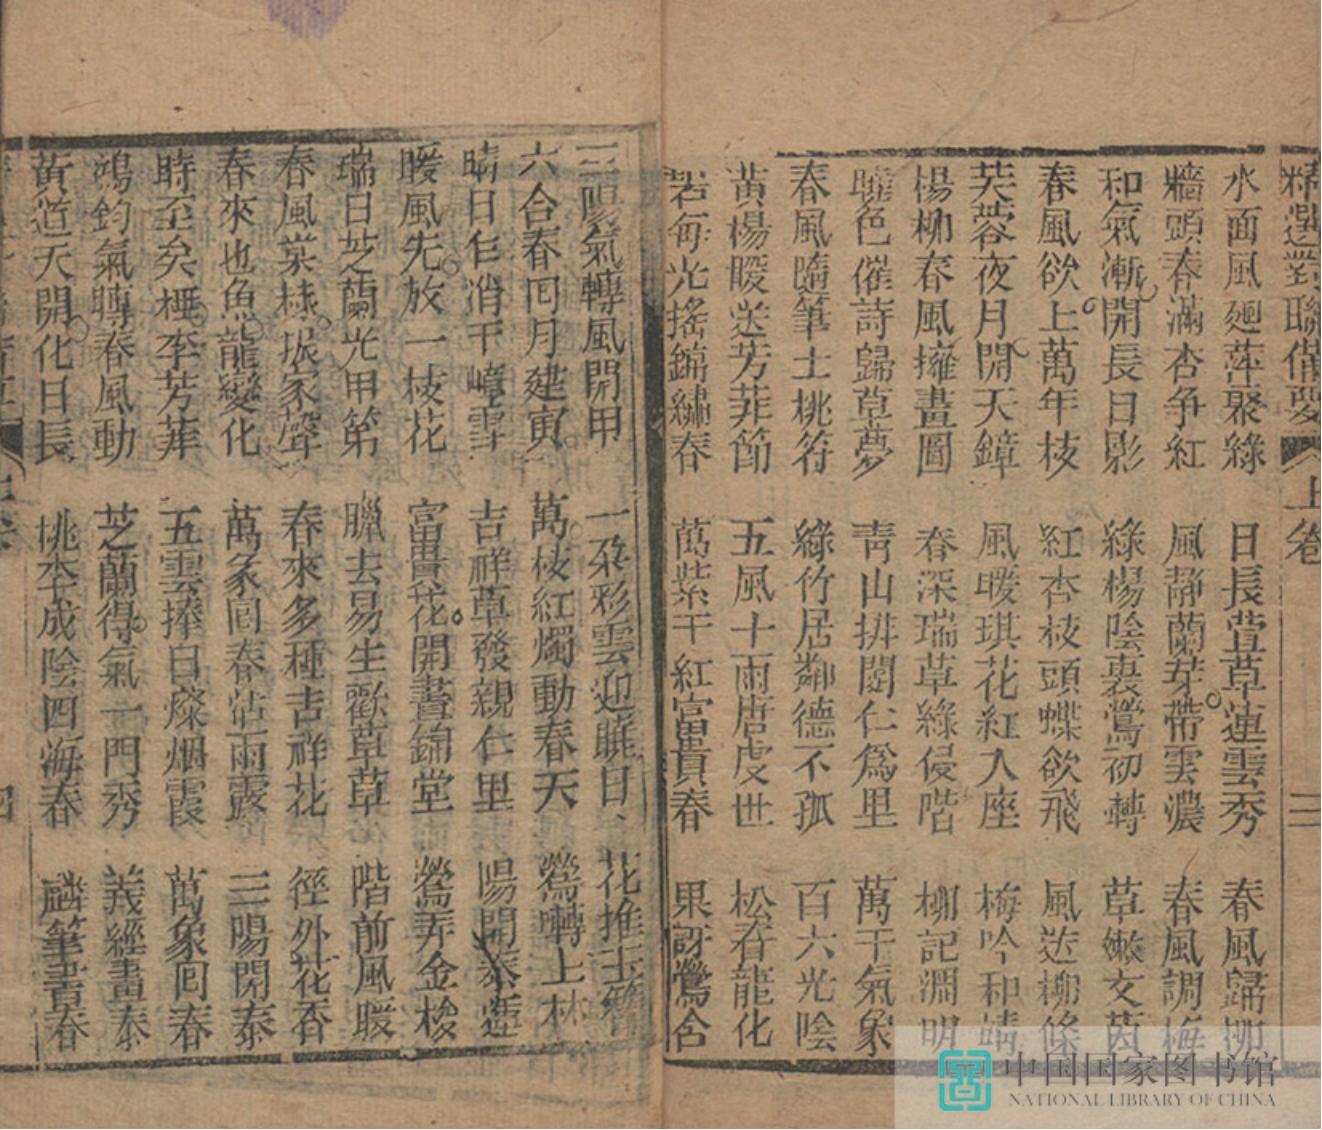 精選對聯備要 上卷 三
水面風廻萍聚綠 日長萱草連雲秀 春風歸柳
牆頭春滿杏争紅 風静蘭芽帶雲濃 春風調梅
和氣漸開長日影 綠楊陰裏鶯初轉 草嫩文茵
春風欲上萬年枝 紅杏枝頭蝶欲飛 風送柳條
芙蓉夜月開天鏡 風暖琪花紅入座 梅吟和靖
楊柳春風擁畫圖 春深瑞草綠侵階 柳記淵明
曉色催詩歸草夢 青山排闥仁爲里 萬千氣象
春風隨筆士桃符 綠竹居鄰德不孤 百六光陰
黃楊暖送芳菲節 五風十雨唐虞世 松看龍化
光搖錦繡春 萬紫千紅富貴春 果訝鶯含
三陽氣轉風開甲 一朶彩雲迎曉日 花推
六合春囘月建寅 萬枝紅燭動春天 鶯囀上林
晴日乍消千嶂雪 吉祥草發親仁里 陽開泰運
暖風先放一枝花 富貴花開晝錦堂 鶯弄金梭
瑞日芝蘭光甲第 臘去易生歡草草 階前風暖
春風棠棣振家聲 春來多種吉祥花 徑外花香
春來也魚龍變化 萬象囘春沾雨露 三陽開泰
時至矣桃李芳菲 五雲捧日燦烟霞 萬象囘春
鴻鈞氣轉春風動 芝蘭得氣一門秀 義經畫泰
黃道天開化日長 桃李成陰四海春 麟筆書春
四
中国国家图书馆
NATIONAL LIBRARY OF CHINA